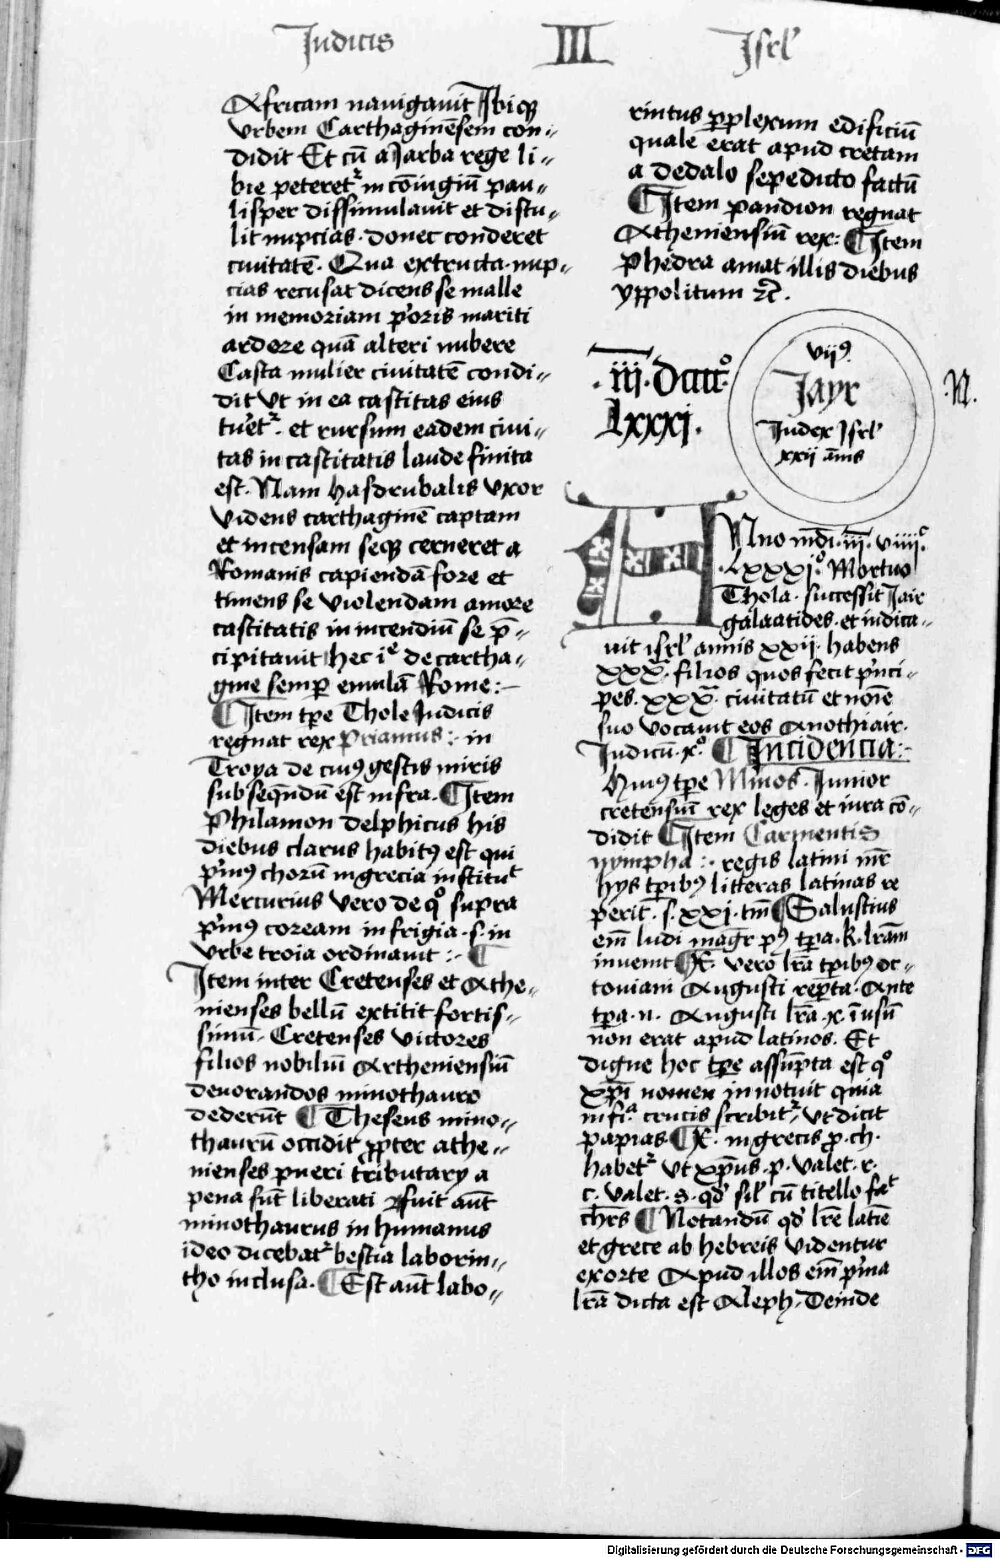 Judicis III Isrl'
Africam nauigauit Ibiq3
vrbem Carthaginēsem con-
didit Et cū a Jarba rege li-
bie peteret in cōiugiū pau-
lisper dissimulauit et distu-
lit nupcias. donec conderet
ciuitatē. Qua extructa. nup-
cias recusat dicens se malle
in memoriam p'oris mariti
ardere quā alteri nubere
Casta mulier ciuitatē condi-
dit vt in ea castitas eius
tu'et'. et rursum eadem ciui-
tas in castitatis laude finita
est. Nam hasdrubalis vxor
videns carthaginē captam
et incensam seq3 cerneret a
Romanis capiendā fore et
timens se violendam amore
castitatis in incendiū se p̄-
cipitauit hec ī de cartha-
gine semp emulā Rome:-
¶ Item tp̄e Thole Judicis
regnat rex Priamus:. in
Troya de cui9 gestis miris
subseq̄ndū est infra. ¶ Item
Philamon delphicus his
diebus clarus habit9 est qui
p'm9 chorū in grecia instituit
Mercurius vero de qo supra
p'm9 coream in frigia .s. in
vrbe troia ordinauit :- ¶
Item inter Cretenses et Athe-
nienses bellū extitit fortis-
simū. Cretenses victores
filios nobiliū Artheniensiū
deuorandos minothauro
dederūt ¶ Theseus mino-
thaurū occidit ꝓpter athe-
nienses pueri tributary a
pena sūt liberati fuit aūt
minothaurus in humanus
ideo dicebat' bestia laborin-
tho inclusa. ¶ Est aūt labo-
rintus ꝑplexum edificiū
quale erat apud cretam
a dedalo sepedicto factū
¶ Item pandion regnat
Atheniensiū rex: ¶ Item
Phedra amat illis diebus
yppolitum ꝛc̄.
.iij. dcccco
lxxxj.
vij9.
Jayr
Judex Isrl'
xxij an̄is
.N.
ANno mdi. iij. viiijc.
.Lxxxjo. Mortuo
Thola. successit Jair
galaatides. et iudica-
uit isrl' annis xxij. habens
xxx. filios quos fecit p'nci-
pes. xxx. ciuitatū et noīe
suo vocauit eos Anothiair.
Judicū. xo. ¶ Incidencia:-
Hui9 tp̄e Minos. Junior
cretensiū rex leges et iura cō-
didit ¶ Item Carmentis
nympha:. regis latini mr̄
hys tp̄ib9 litteras latinas re
perit. s. xxj. tm̄ ¶ Salustius
em̄ ludi magr̄ p9 tp̄a. k. lr̄am
inuenit ¶ X. vero lr̄a tp̄ib9 oc-
touiani Augusti rep̄ta. Ante
tp̄a. n. Augusti lr̄a .x. ī usū
non erat apud latinos. Et
digne hoc tp̄e assūpta est qo
xp̄i nomen in notuit quia
in fi'a crucis scribit', vt dicit
papias ¶ X. in grecis p. ch.
habet' vt xp̄us. p. valet. r.
c. valet. s. qd' sil' cū titello fac̄
chr̄s ¶ Notandū qd' lr̄e latīe
et grece ab hebreis videntur
exorte Apud illos em̄ p'ma
lr̄a dicta est Aleph. Deinde
Digitalisierung gefördert durch die Deutsche Forschungsgemeinschaft - DFG